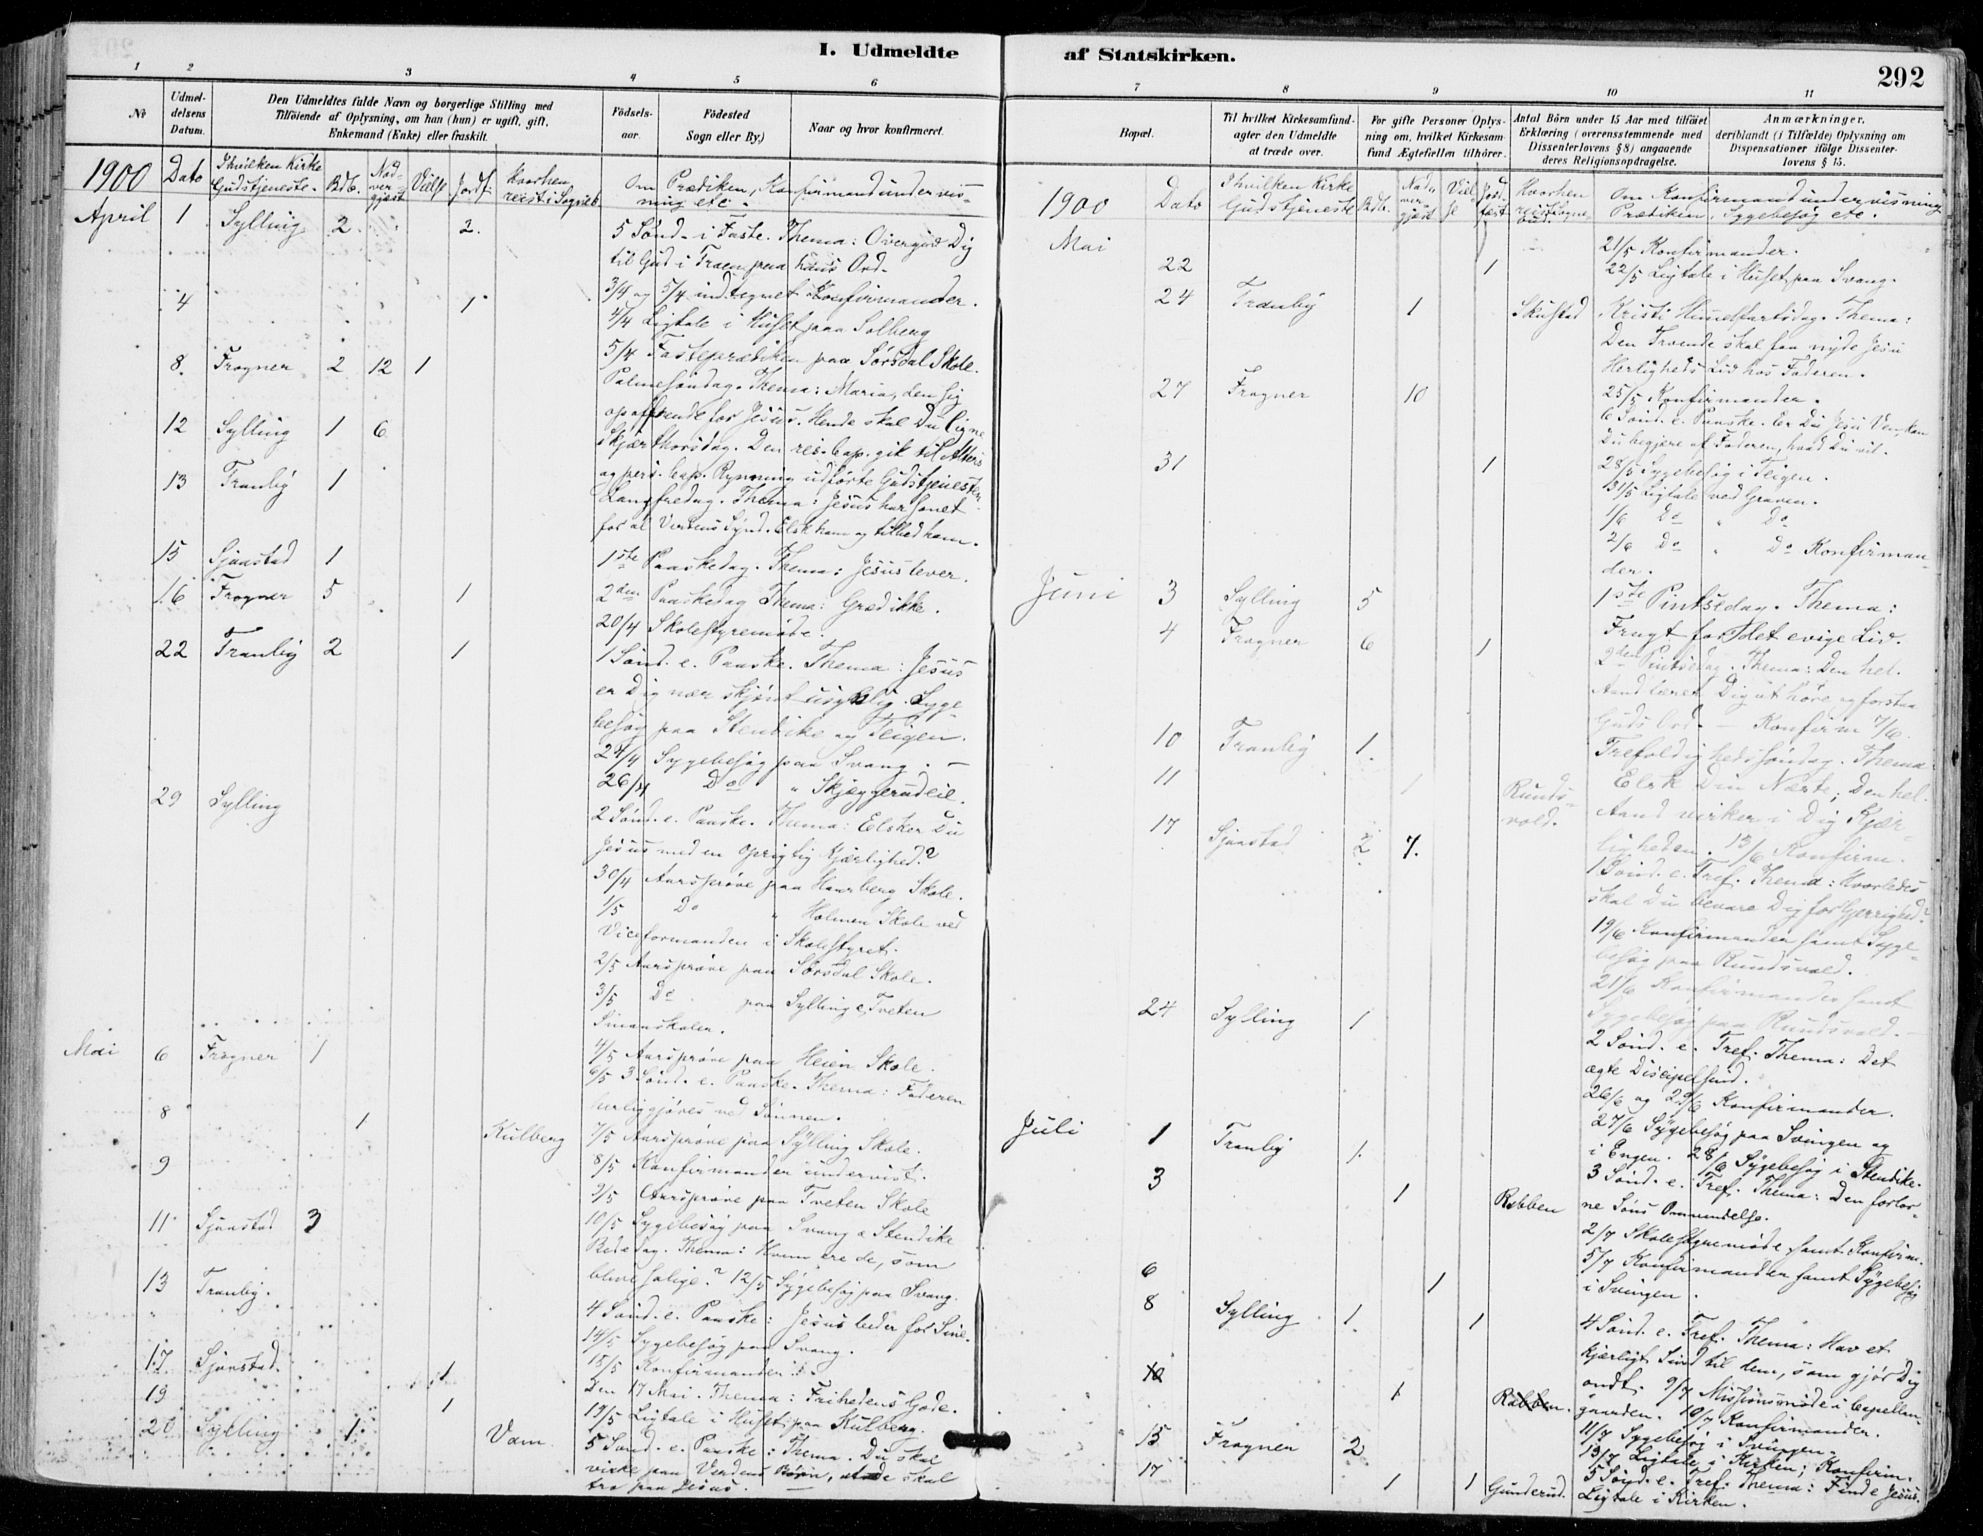 I. Udmeldte af Statskirken.
292
1 2 3 4 5 6
№
Udmeldelsens Datum.
Den Udmeldtes fulde Navn og borgerlige Stilling med
Tilføiende af Oplysning, om han (hun) er ugift, gift,
Enkemand (Enke) eller fraskilt.
Födselsaar.
Födested
Sogn eller By.)
Naar og hvor konfirmeret.
1900 Dato I hvilken Kirke Gudstjeneste. Bdb. Nadvergjest Vielse Jordf. hvorhen reist i Sognebud
Om Prædiken, Konfirmandundervisning etc.
April 1 Sylling 2 2. 5 Sønd. i Faste. Thema: Overgiv Dig
til Gud i Troen paa hans Ord.
3/4 og 5/4 indtegnet Konfirmander.
4 1 4/4 Ligtale i Huset paa Solberg
5/4 Fasteprædiken paa Sørsdal Skole.
8. Frogner 2 12 1 Palmesøndag. Thema: Maria, den sig
opoffrende for Jesus. Hende skal Du ligne
12 Sylling 1 6 Skjærthorsdag. Den res. Cap. gik til Alters
og pers. Cap. Rynning udførte Gudstjenesten
13 Tranby 1 Langfredag. Thema: Jesus har sonet
for al Verdens Synd. Elsk ham og tilbed ham.
15 Sjaastad 1 1ste Paaskedag. Thema: Jesus lever.
16 Frogner 5 1 2den Paaskedag Thema: Græd ikke.
20/4 Skolestyremøde.
22 Tranby 2 1 1 Sønd. e. Paaske. Thema: Jesus
er Dig nær skjønt usynlig. Sygebesøg paa Stenbike og Teigen.
24/4 Sygebesøg paa Svang. —
26/4 Do " Skjæggerudeie.
29 Sylling 2 Sønd. e. Paaske. Thema: Elsker Du
Jesus med en oprigtig Kjærlighed?
30/4 Aarsprøve paa Haarberg Skole.
1/5 Do " Holmen Skole ved
Viceformanden i Skolestyret.
2/5 Aarsprøve paa Sørsdal Skole.
3/5 Do paa Sylling e Tveten
Smaaskoler.
4/5 Aarsprøve paa Heien Skole.
Mai 6 Frogner 1 6/5 3 Sønd. e. Paaske. Thema: Faderen
herliggjøres ved Sønnen.
8 1 Kulberg 7/5 Aarsprøve paa Sylling Skole.
9 8/5 Konfirmander undervist.
9/5 Aarsprøve paa Tveten Skole
10/5 Sygebesøg paa Svang e Stendike
11 Sjaastad 3 Bededag. Thema: Hvem ere de, som
blive salige? 12/5 Sygebesøg paa Svang.
13 Tranby. 4 Sønd. e. Paaske: Jesus beder for Sine.
14/5 Sygebesøg paa Svang.
15/5 Konfirmander.
17 Sjaastad. 1 Den 17 Mai. Thema: Frihedens Gode.
19 1 19/5 Ligtale i Huset paa Kulberg.
20 Sylling 1 Vam 5 Sønd. e. Paaske: Thema. Du skal
virke paa Verdens Børn, at de skal
tro paa Jesus.
7 8 9 10 11
Bopæl.
Til hvilket Kirkesamfundagter den Udmeldte
at træde over.
For gifte Personer Oplysning om, hvilket Kirkesamfund Ægtefællen tilhörer.
Antal Börn under 15 Aar med tilföiet
Erklæring (overensstemmende med
Dissenterlovens § 8) angaaende
deres Religionsopdragelse.
Anmærkninger.
deriblandt (i Tilfælde) Oplysning om
Dispensationer ifölge Dissenterlovens § 15.
1900 Dato I hvilken Kirke Gudstjeneste Bdb. Nadvergjest Vielse Jordfæst Hvorhen reist i Sognebud.
Om Konfirmandundervisning
Prædiken, Sygebesøg etc.
Mai 21/5 Konfirmander.
22 1 22/5 Ligtale i Huset paa Svang.
24 Tranby 1 Skustad Kristi Himmelfartsdag. Thema:
Den Troende skal faa nyde Jesu
Herligheds Liv hos Faderen.
27 Frogner 10 25/5 Konfirmander.
6 Sønd. e. Paaske. Er Du Jesu Ven, kan
Du begjere af Faderen, hvad Du vil.
31 1 28/5 Sygebesøg i Teigen.
31/5 Ligtale ved Graven.
1/6 Do " Do
2/6 Do " Do Konfirmander.
Juni 3 Sylling 5 1ste Pintsedag. Thema:
Frugt for det evige Liv.
4 Frogner 6 1 2den Pintsedag. Thema: Den hel.
Aand lærer Dig at høre og forstaa
Guds Ord. — Konfirm 7/6.
10 Tranby 1. Trefoldighedssøndag. Thema:
11 1 Rundsvold. Elsk Din Næste; Den hel.
Aand virker i Dig Kjærligheden. 13/6 Konfirm.
17 Sjaastad 2 7. 1 Sønd. e. Tref. Thema: Hvorledes
skal Du bevare Dig for Gjerrighed?
19/6 Konfirmander samt Sygebesøg paa Rundsvold.
21/6 Konfirmander samt
Sygebesøg paa Rundsvold. —
24 Sylling 1 2 Sønd. e. Tref. Thema: Det
ægte Discipelsind.
26/6 og 29/6 Konfirmander.
27/6 Sygebesøg paa Svingen og
i Engen. 28/6 Sygebesøg i Stendike.
Juli 1 Tranby 1. 3 Sønd. e. Tref. Thema: Den fortorne Søns Omvendelse.
3 1 Rabben 2/7 Skolestyremøde samt Konfirm.
5/7 Konfirmander samt Sygebesøg
i Svingen.
6 1
8 Sylling 1. 1 4 Sønd. e. Tref. Thema: Hav et
kjærligt Sind til dem, som gjør Dig
ondt. 9/7 Missionsmøde i Capellangaarden. 10/7 Konfirmander.
10 1 Rabben. 11/7 Sygebesøg i Svingen.
13/7 Ligtale i Kirken; Konfirm.
15 Frogner 2 5 Sønd. e. Tref. Thema: Find e Jesus.
17 1 1 Gunderud. Ligtale i Kirken.